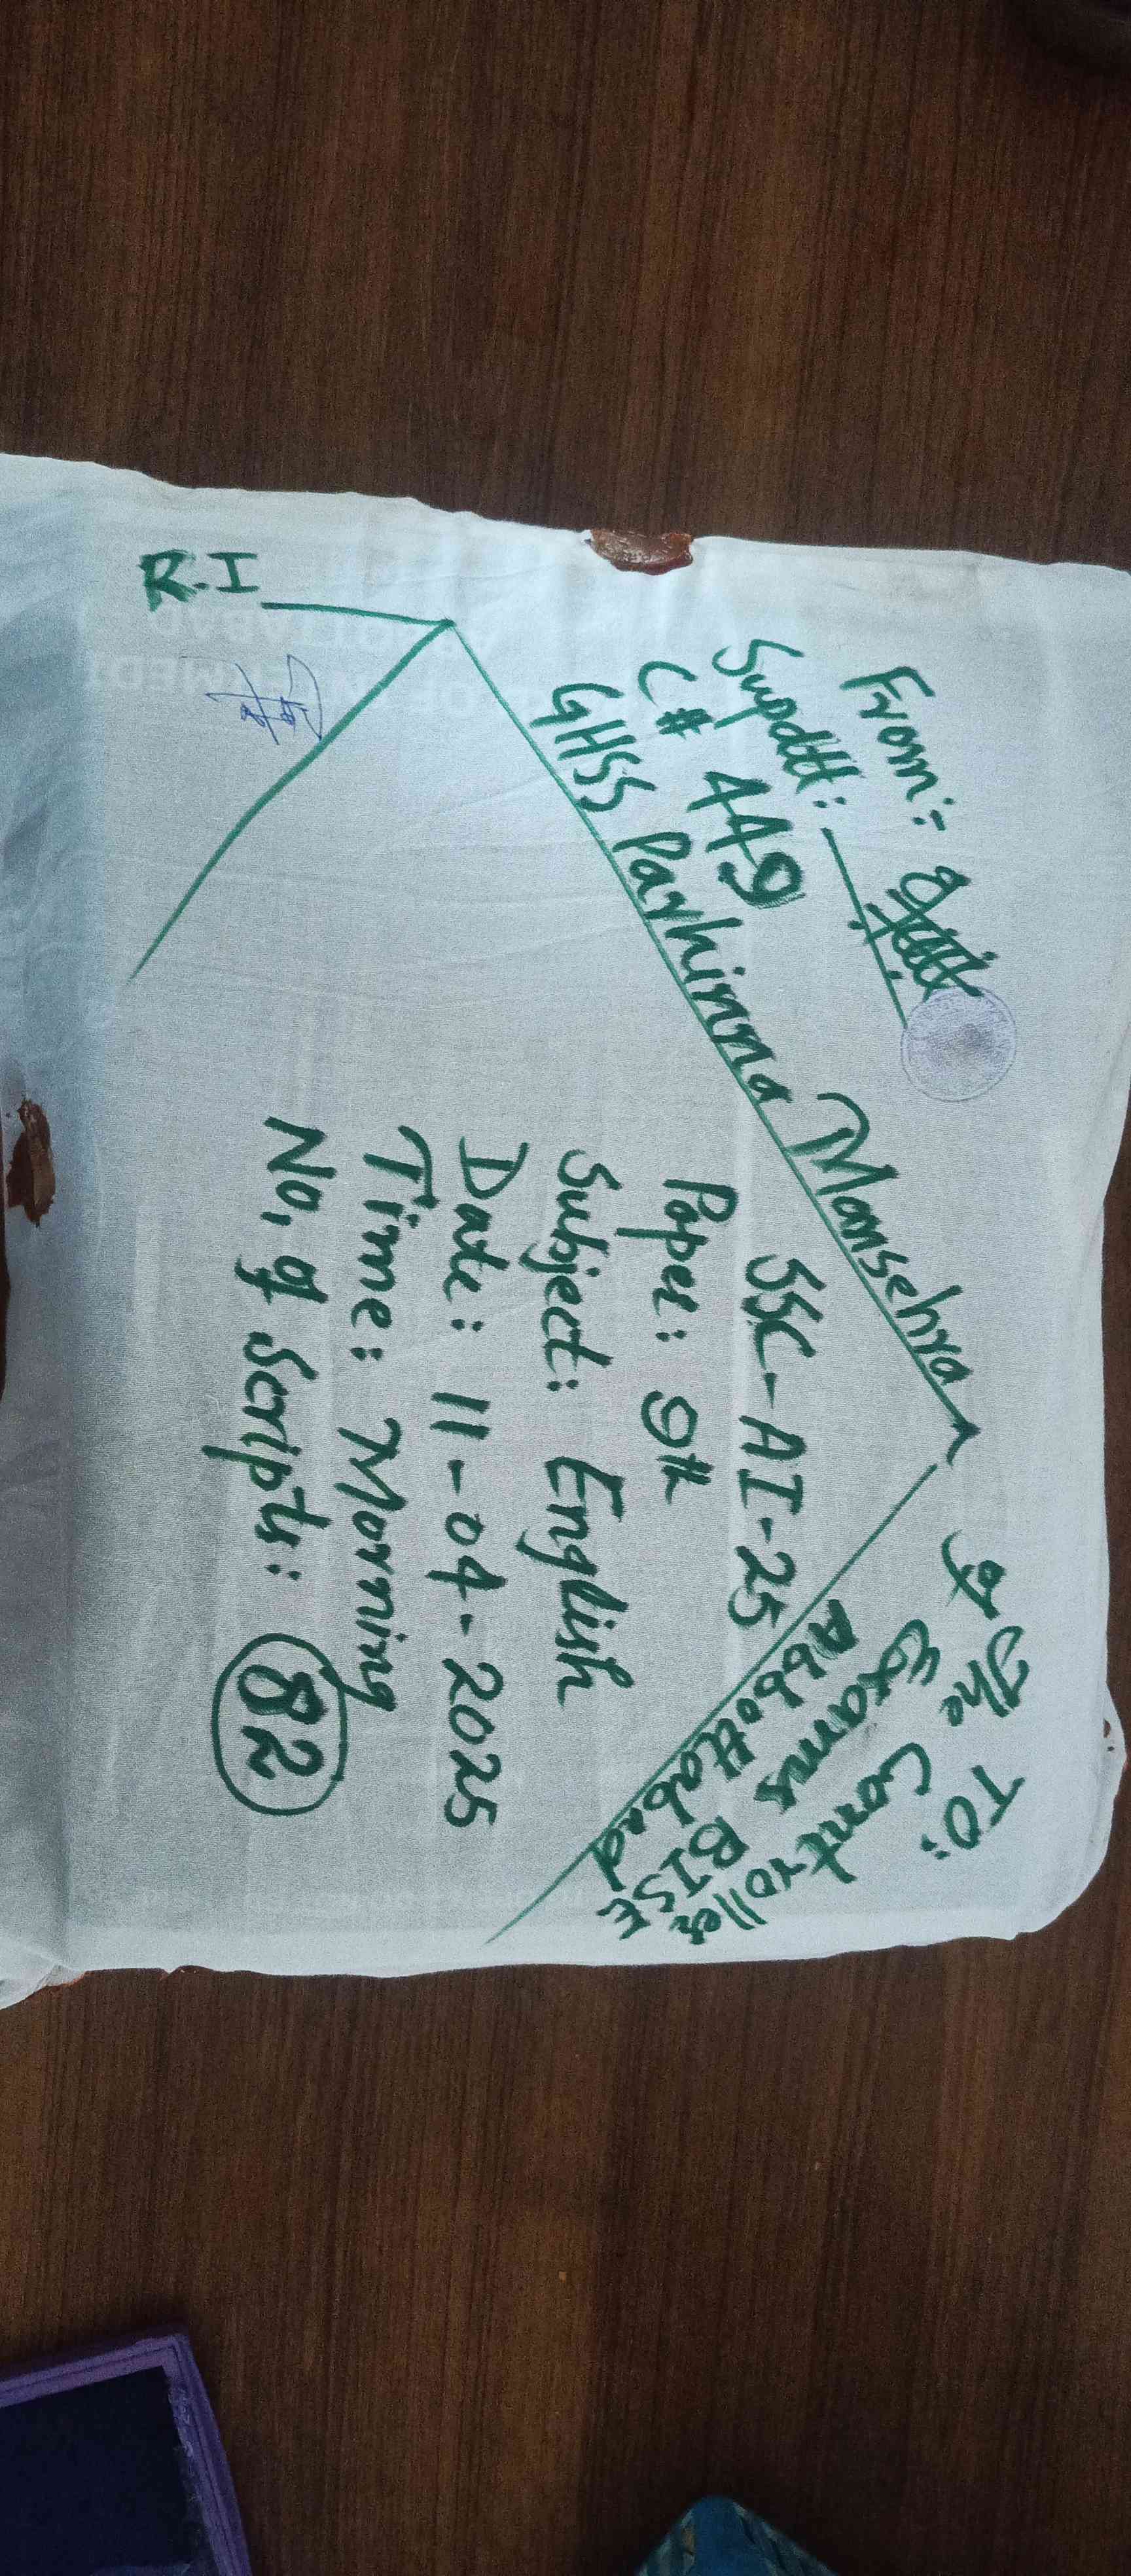 From:-
Supdtt:
C# 449
GHSS Parhinna Mansehra
TO:
The Controller
of Exams BISE
Abbottabad
SSC-AI-25
Paper: 9th
Subject: English
Date: 11-04-2025
Time: Morning
No. of Scripts: 82
R.I